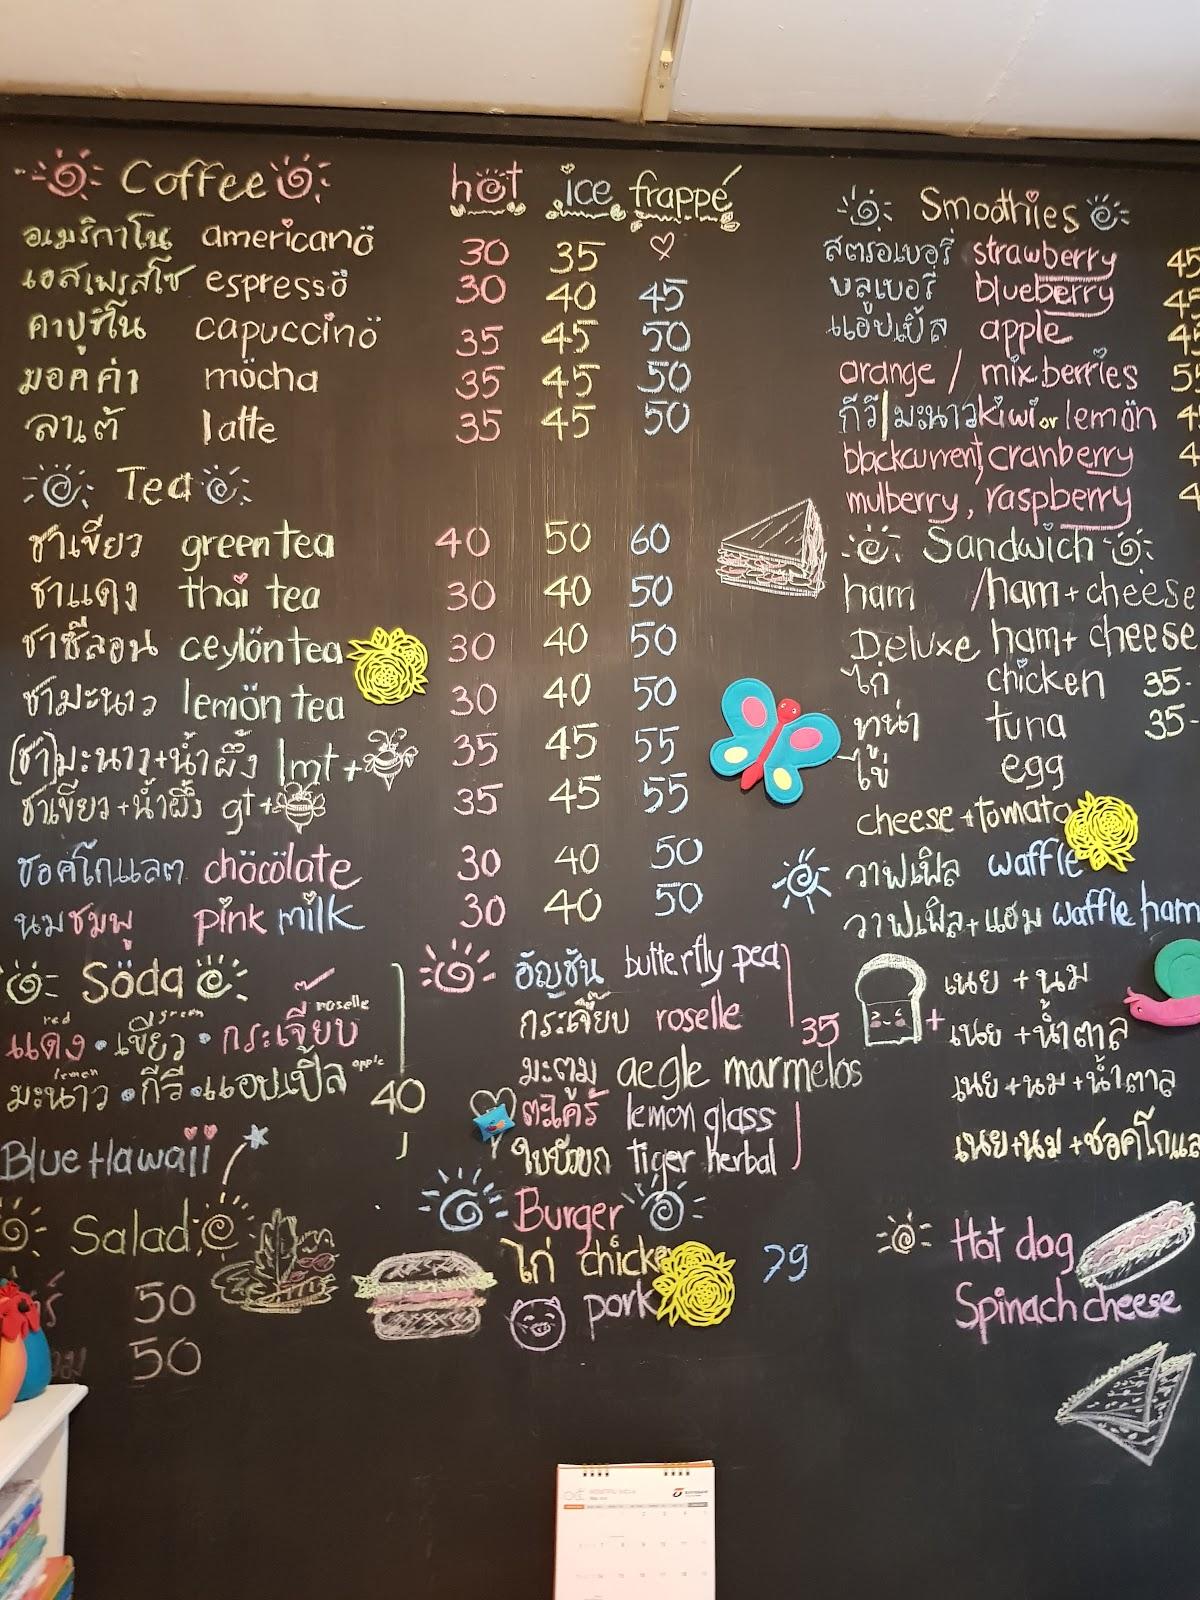 Coffee hot ice frappé
อเมริกาโน americano 30 35
เอสเพรสโซ espresso 30 40 45
คาปูชิโน capuccino 35 45 50
มอคค่า mocha 35 45 50
ลาเต้ latte 35 45 50
Tea
ชาเขียว green tea 40 50 60
ชาแดง thai tea 30 40 50
ชาซีลอน ceylon tea 30 40 50
ชามะนาว lemon tea 30 40 50
(ชา)มะนาว+น้ำผึ้ง lmt+ 35 45 55
ชาเขียว+น้ำผึ้ง gt+ 35 45 55
ชอคโกแลต chocolate 30 40 50
นมชมพู pink milk 30 40 50
Soda
red green roselle
แดง • เขียว • กระเจี๊ยบ
lemon apple
มะนาว • กีวี • แอปเปิ้ล 40
Blue Hawaii
Salad
50
50
อัญชัน butterfly pea
กระเจี๊ยบ roselle 35
มะตูม aegle marmelos
ตะไคร้ lemon glass
ใบบัวบก tiger herbal
Burger
ไก่ chicke 79
pork
Smoothies
สตรอเบอรี่ strawberry 45
บลูเบอรี่ blueberry 45
แอ๊ปเปิ้ล apple 45
orange / mix berries 55
กีวี/มะนาว kiwi or lemon
blackcurrent, cranberry
mulberry, raspberry
Sandwich
ham / ham + cheese
Deluxe ham + cheese
ไก่ chicken 35.-
ทูน่า tuna 35.-
ไข่ egg
cheese + tomato
วาฟเฟิล waffle
วาฟเฟิล + แฮม waffle ham
+ เนย + นม
เนย + น้ำตาล
เนย + นม + น้ำตาล
เนย + นม + ชอคโกแล
Hot dog
Spinach cheese